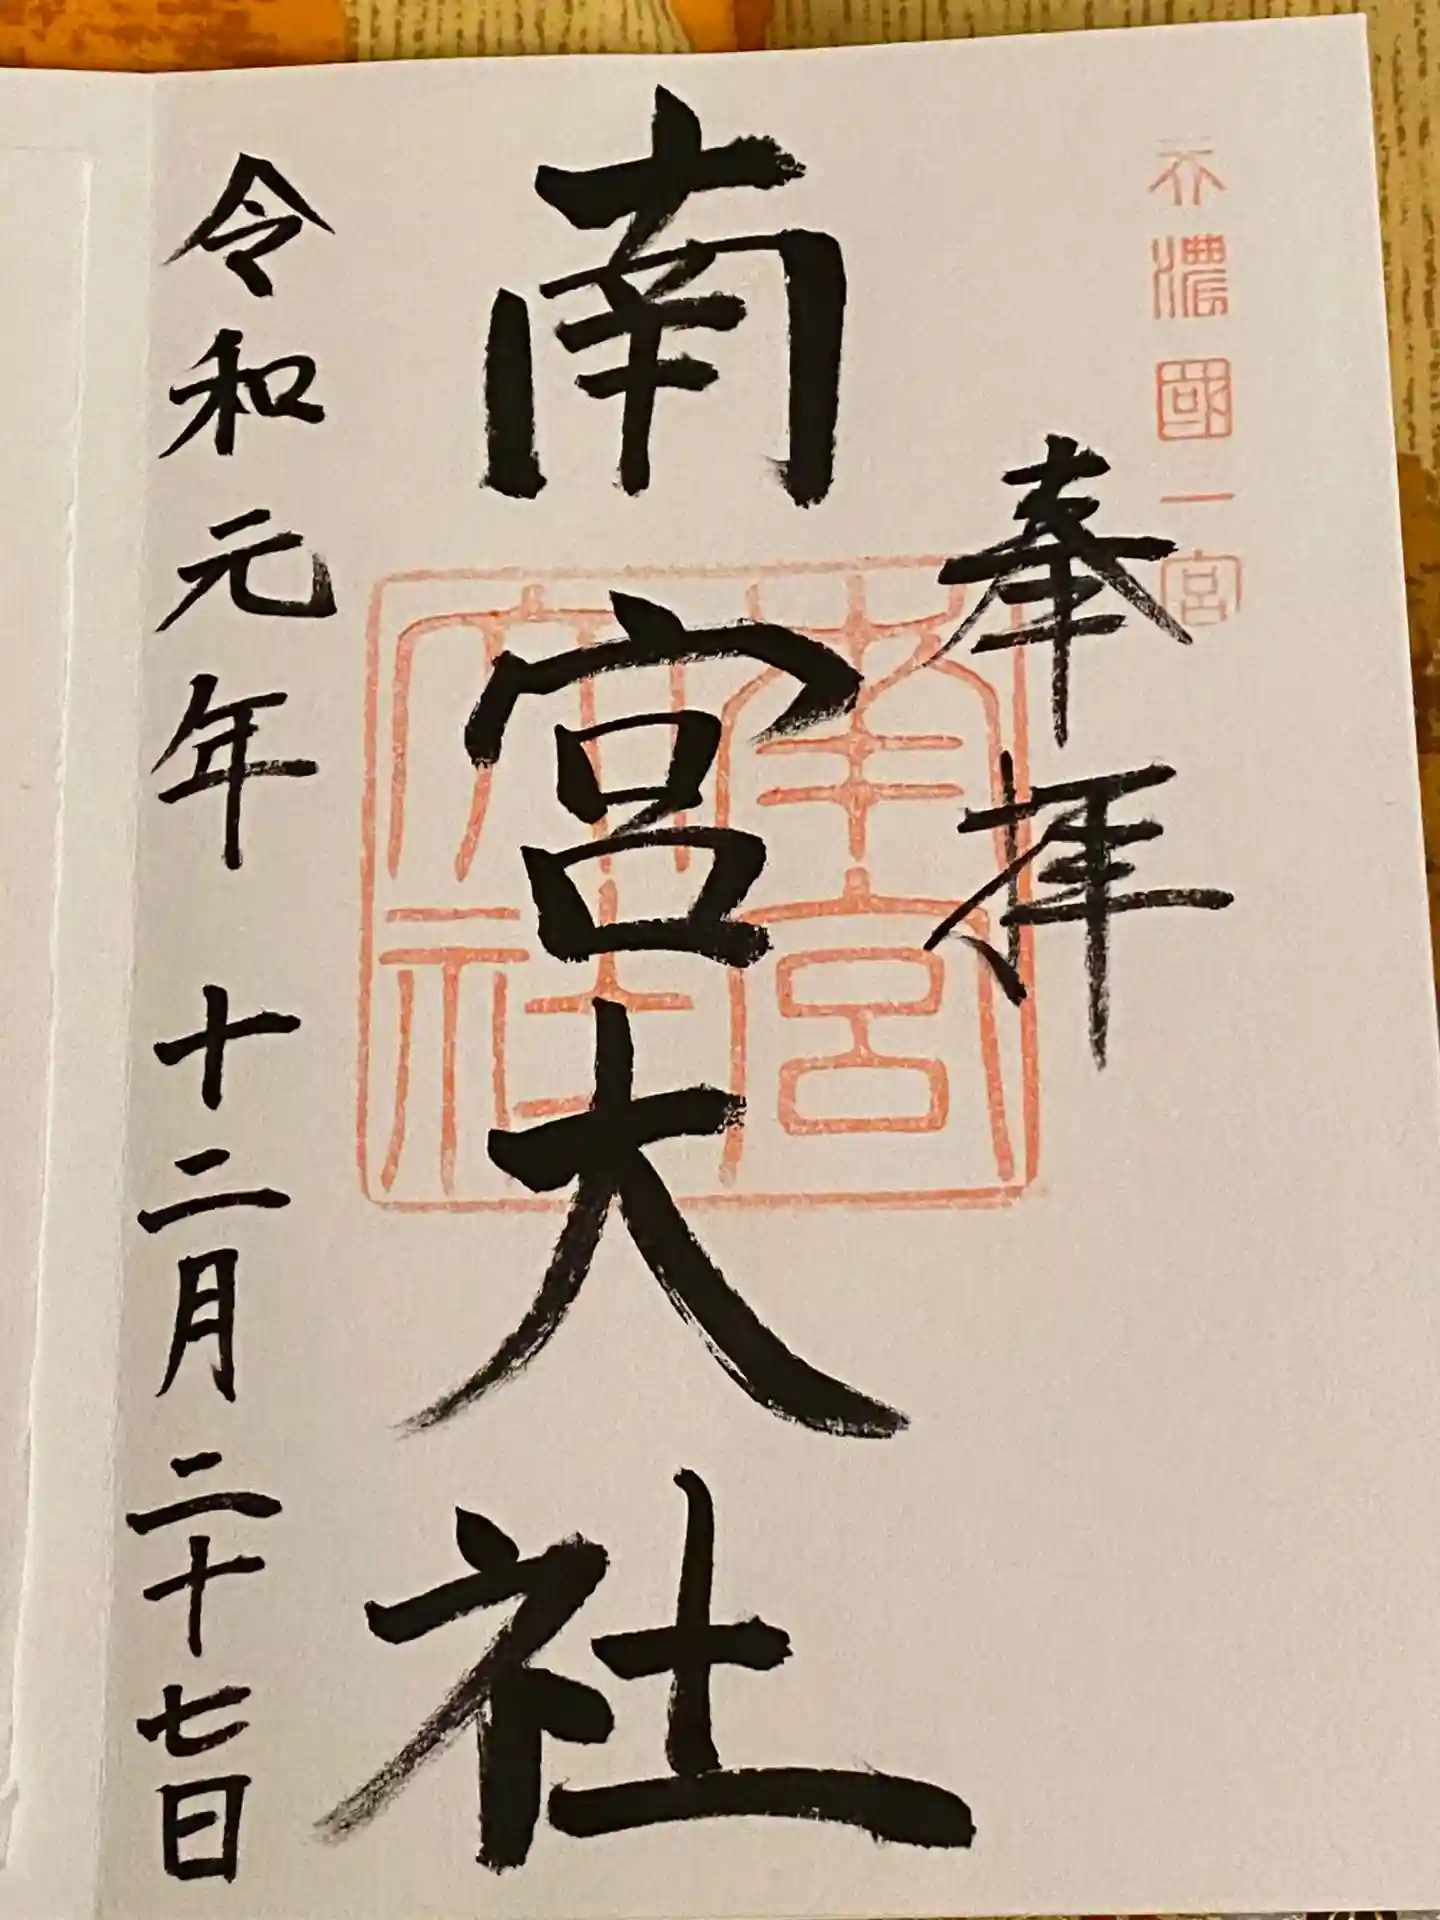 美濃國一宮
奉拝
南宮大社
南宮大社
令和元年 十二月二十七日